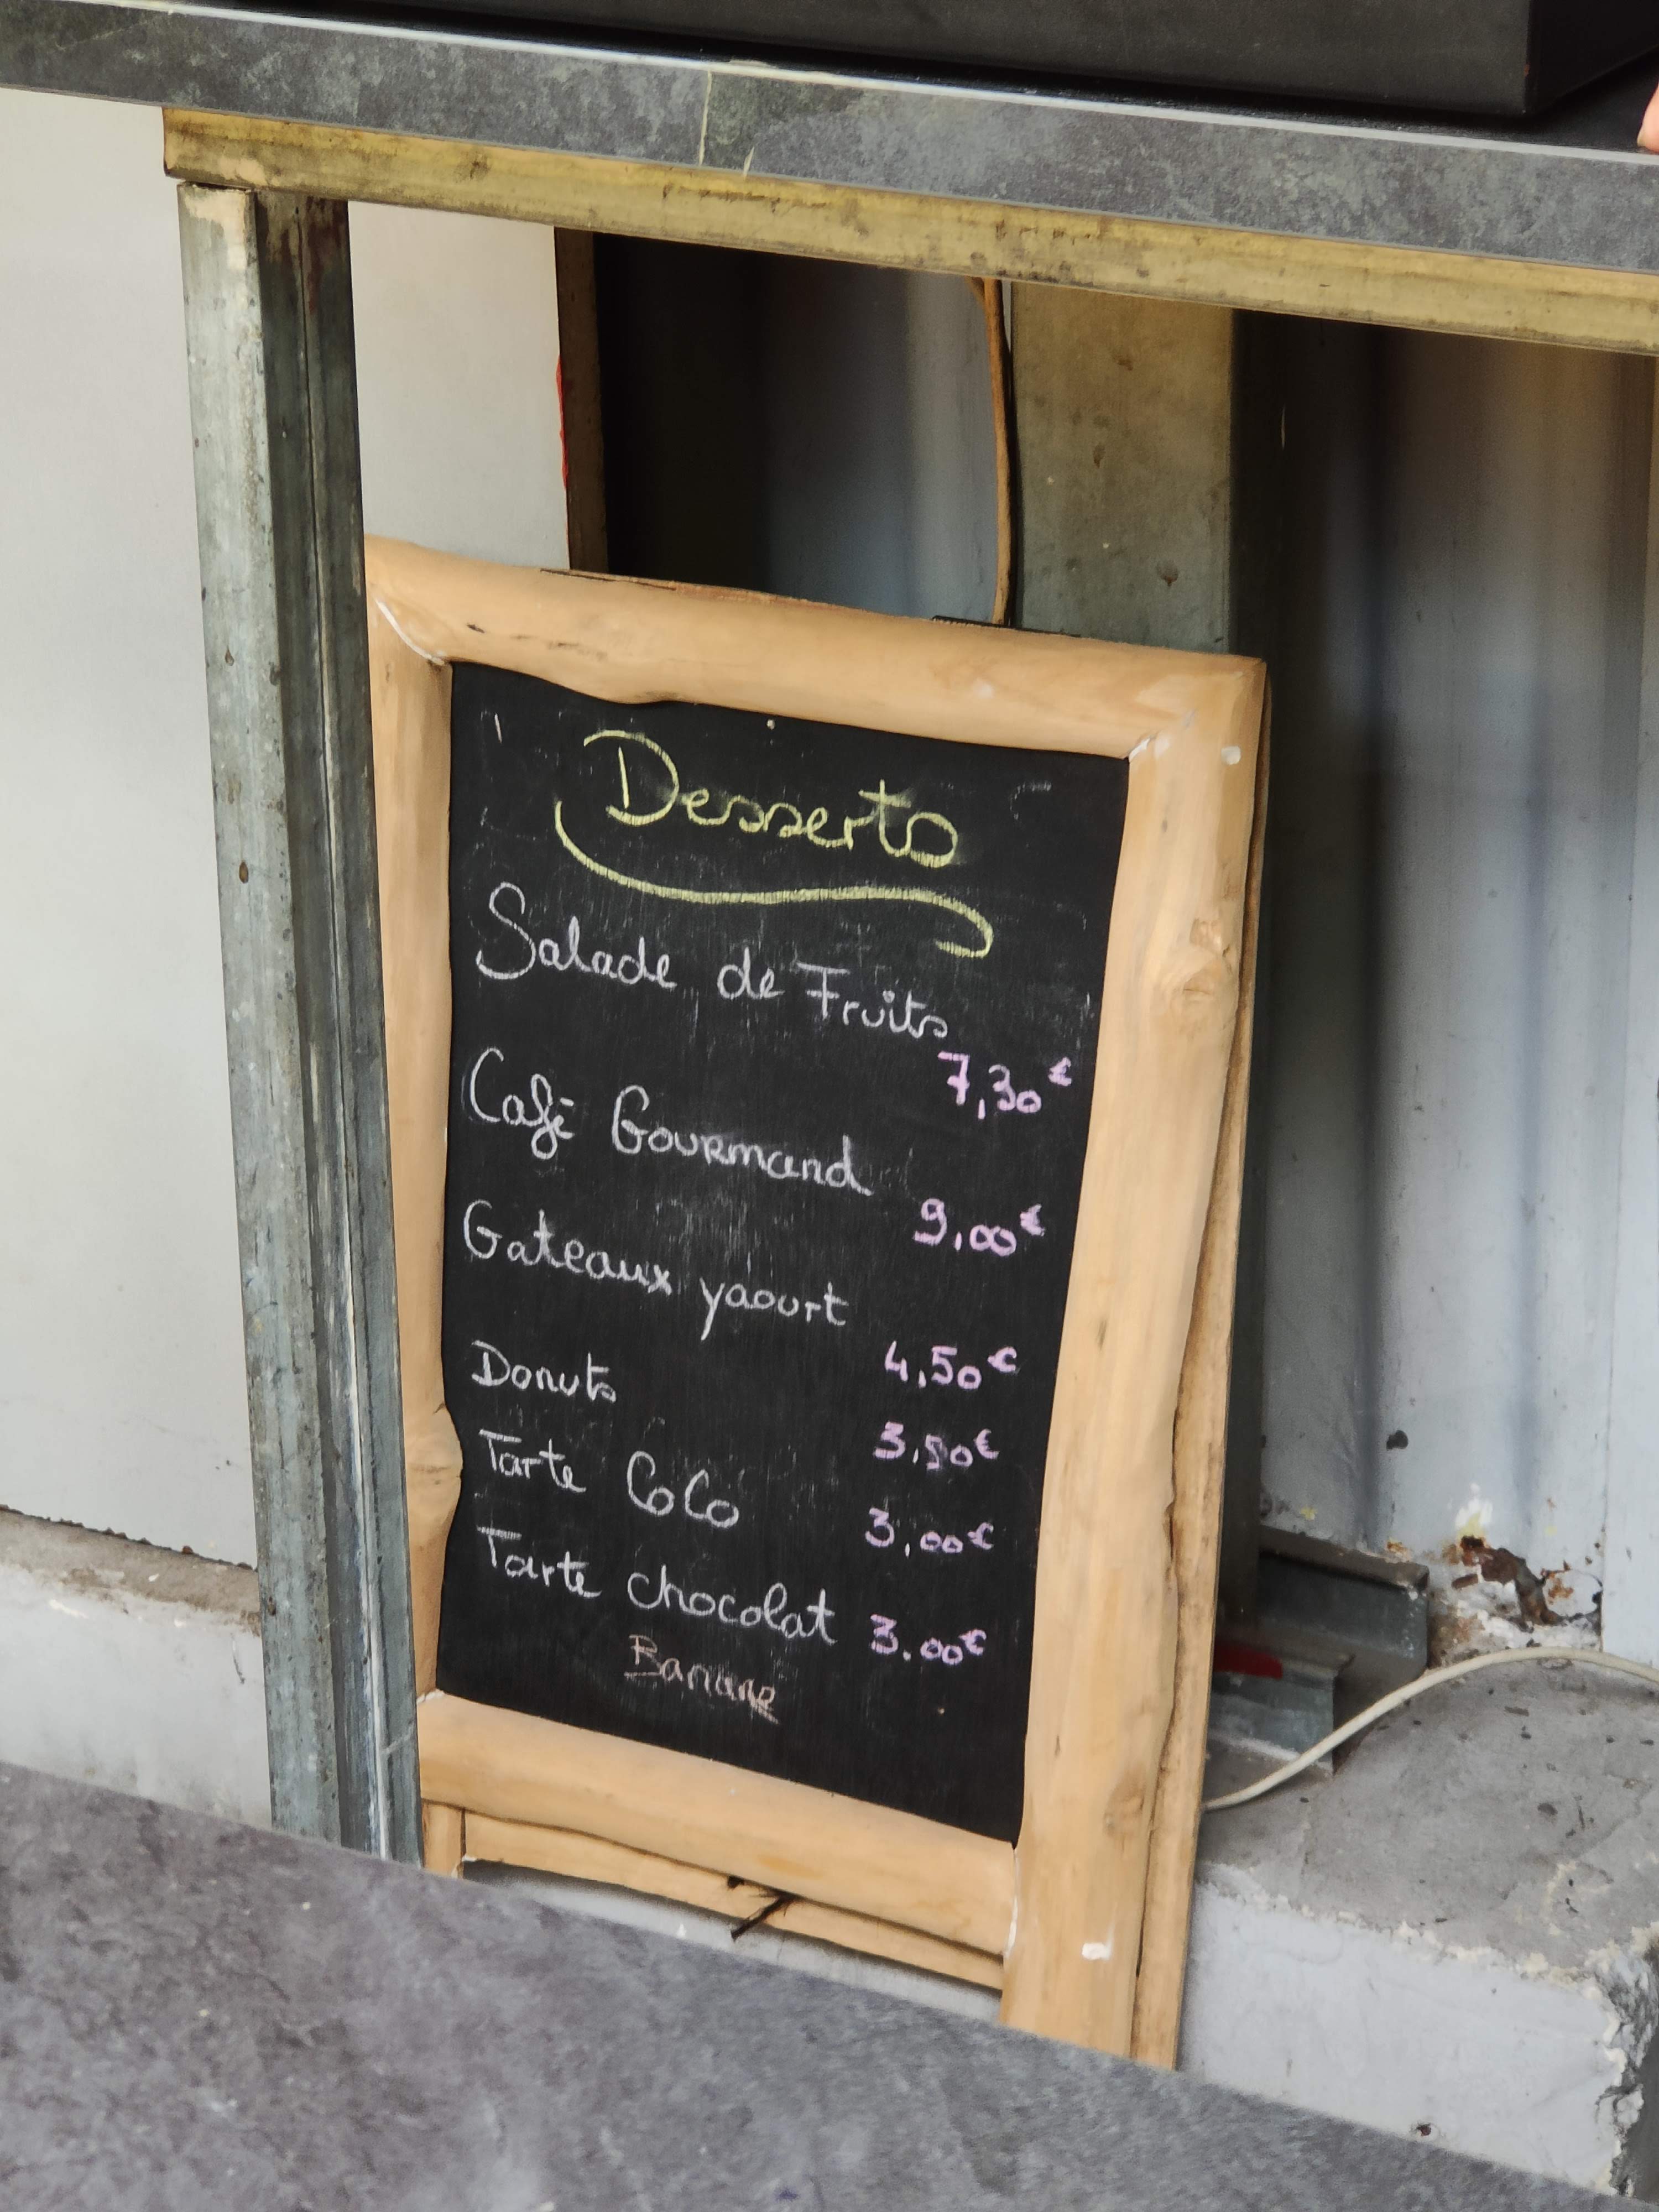 Desserts
Salade de Fruits
7,30€
Café Gourmand
9,00€
Gateaux yaourt
4,50€
Donuts
3,50€
Tarte CoCo
3,00€
Tarte chocolat 3.00€
Banane